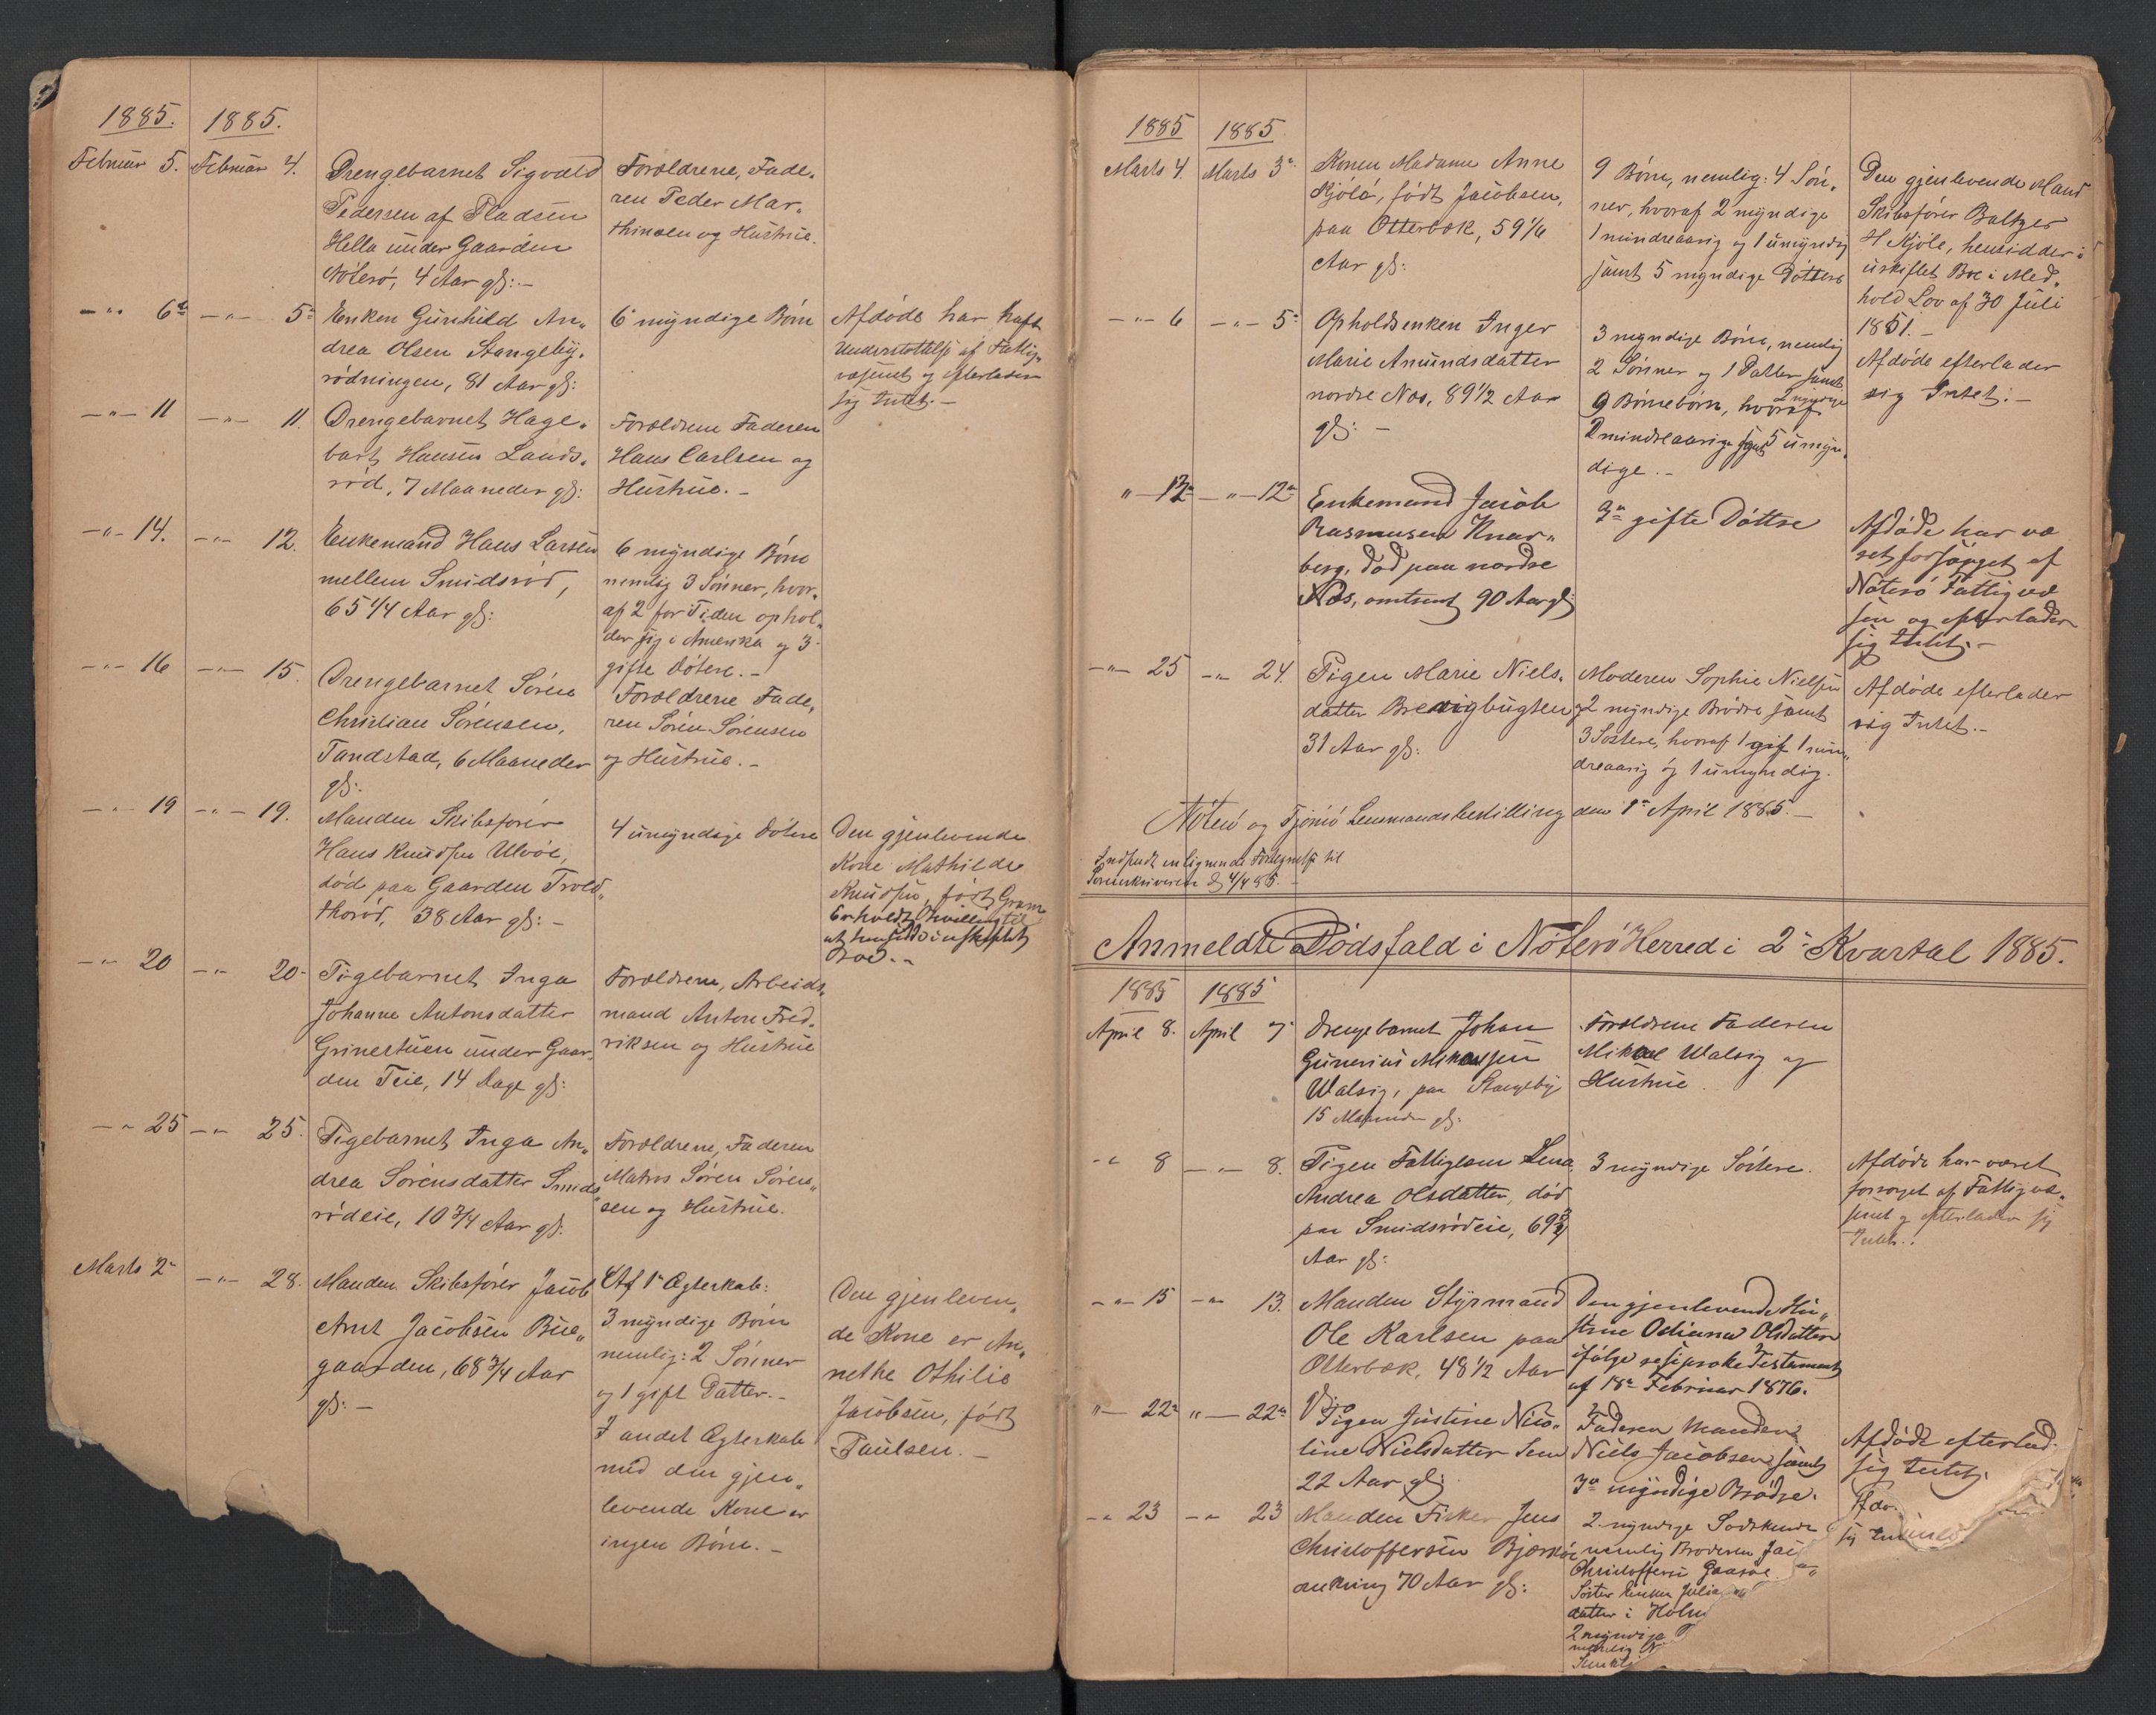 1885. 1885.
Februar 5. Februar 4. Drengebarnet Sigvald
Pedersen af Pladsen
Hella under Gaarden
Nøterø, 4 Aar gl: -
Forældrene, Fade-
ren Peder Mar-
thinsen og Hustrue.
-"- 6te -"- 5te Enken Gunhild An-
drea Olsen Stangeby-
rødningen, 81 Aar gl:
6 myndige Børn
Afdøde har havt
Understøttelse af Fattig-
væsenet og efterlader
sig Intet. -
-"- 11 -"- 11. Drengebarnet Hage-
bart Hansen Lands-
rød, 7 Maaneder gl:
Forældrene Faderen
Hans Carlsen og
Hustrue. -
-"- 14. -"- 12. Enkemand Hans Larsen
mellem Smidsrød,
65 1/4 Aar gl:
6 myndige Børn
nemlig 3 Sønner, hvor-
af 2 for Tiden ophol-
der sig i Amerika og 3
gifte Døtere. -
-"- 16 -"- 15. Drengebarnet Søren
Christian Sørensen,
Tandstad, 6 Maaneder
gl:
Forældrene Fade-
ren Søren Sørensen
og Hustrue. -
-"- 19 -"- 19. Manden Skibsfører
Hans Knudsen Ulvøe,
død paa Gaarden Trold-
thorød, 38 Aar gl: -
4 umyndige Døtere
Den gjenlevende
Kone Mathilde
Knudsen, født Gram
at hensidde i uskiftet
Boe. -
-"- 20 -"- 20. Pigebarnet Inga
Johanne Antonsdatter
Grinestuen under Gaar-
den Teie, 14 Dage gl:
Forældrene, Arbeids-
mand Anton Fred-
riksen og Hustrue
-"- 25 -"- 25. Pigebarnet Inga An-
drea Sørensdatter Smids-
rødeie, 10 3/4 Aar gl.
Forældrene, Faderen
Matros Søren Søren-
sen og Hustrue.
Marts 2 -"- 28. Manden Skibsfører Jacob
Arnt Jacobsen Bue-
gaarden, 68 3/4 Aar
gl: -
Af 1 Ægteskab:
3 myndige Børn
nemlig: 2 Sønner
og 1 gift Datter. -
I andet Ægteskab
med den gjen-
levende Kone er
ingen Børn. -
Den gjenleven-
de Kone er An-
nethe Othilie
Jacobsen, født
Paulsen. -
1885 1885
Marts 4. Marts 3. Konen Madame Anne
Kjøle, født Jacobsen,
paa Otterbæk, 59 1/6
Aar gl:
9 Børn, nemlig: 4 Søn-
ner, hvoraf 2 myndige
1 mindreaarig og 1 umyndig
samt 5 myndige Døttere
Den gjenlevende Mand
Skibsfører Baltzer
H Kjøle, hensidder i
uskiftet Boe i Med-
hold Lov af 30 Juli
1851. -
-"- 6 -"- 5. Opholdsenken Inger
Marie Amundsdatter
nordre Næs, 89 1/2 Aar
gl: -
3 myndige Børn, nemlig
2 Sønner og 1 Datter samt
9 Børnebørn, hvoraf 2 myndige
2 mindreaarige samt 5 umyn-
dige. -
Afdøde efterlader
sig Intet. -
"- 12 -"- 12 Enkemand Jacob
Rasmusen Knar-
berg, død paa nordre
Næs, omtrent 90 Aar gl:
3 gifte Døttre
Afdøde har væ
ret forsørget af
Nøterø Fattigvæ
sen og efterlader
sig Intet. -
-"- 25 -"- 24. Pigen Marie Niels-
datter Brevigbugten
31 Aar gl:
Moderen Sophie Nielsen
og 2 myndige Brødre samt
3 Søstere, hvoraf 1 gift 1 min-
dreaarig og 1 umyndig.
Afdøde efterlader
sig Intet. -
Nøterø og Tjømø Lensmandsbestilling den 1 April 1885. -
Indsendt en lignende Fortegnelse til
Sorenskriveren d 4/4 85. -
Anmeldte Dødsfald i Nøterø Herred i 2 Kvartal 1885.
1885 1885
April 8. April 7. Drengebarnet Johan
Gunerius Mikaelsen
Walsig, paa Stangeby
15 Maaneder gl:
Forældrene Faderen
Mikael Walsig og
Hustrue.
-"- 8 -"- 8. Pigen Fattiglem Lena
Andrea Olsdatter, død
paa Smidsrødeie, 69 3/4
Aar gl:
3 myndige Søstere.
Afdøde har været
forsørget af Fattigvæ-
senet og efterlader sig
Intet.
-"- 15 -"- 13. Manden Styrmand
Ole Karlsen paa
Otterbæk, 48 1/2 Aar
Den gjenlevende Hu-
strue Odiana Olsdatter
ifølge resiproke Testament
af 18 Februar 1876.
"- 22 "- 22 Pigen Justine Nico-
line Nielsdatter Sem
22 Aar gl:
Faderen Manden
Niels Jacobsen samt
3 myndige Brødre.
Afdøde efterlad
sig Intet.
-"- 23 -"- 23 Manden Fisker Jens
Christoffersen Bjerkøe
omkring 70 Aar gl:
2 myndige Sødskende
nemlig Broderen Jac
Christoffersen Gaasøe
Søster Enken Julia
datter i Holm
2 myndige
nemlig
Afdø
sig